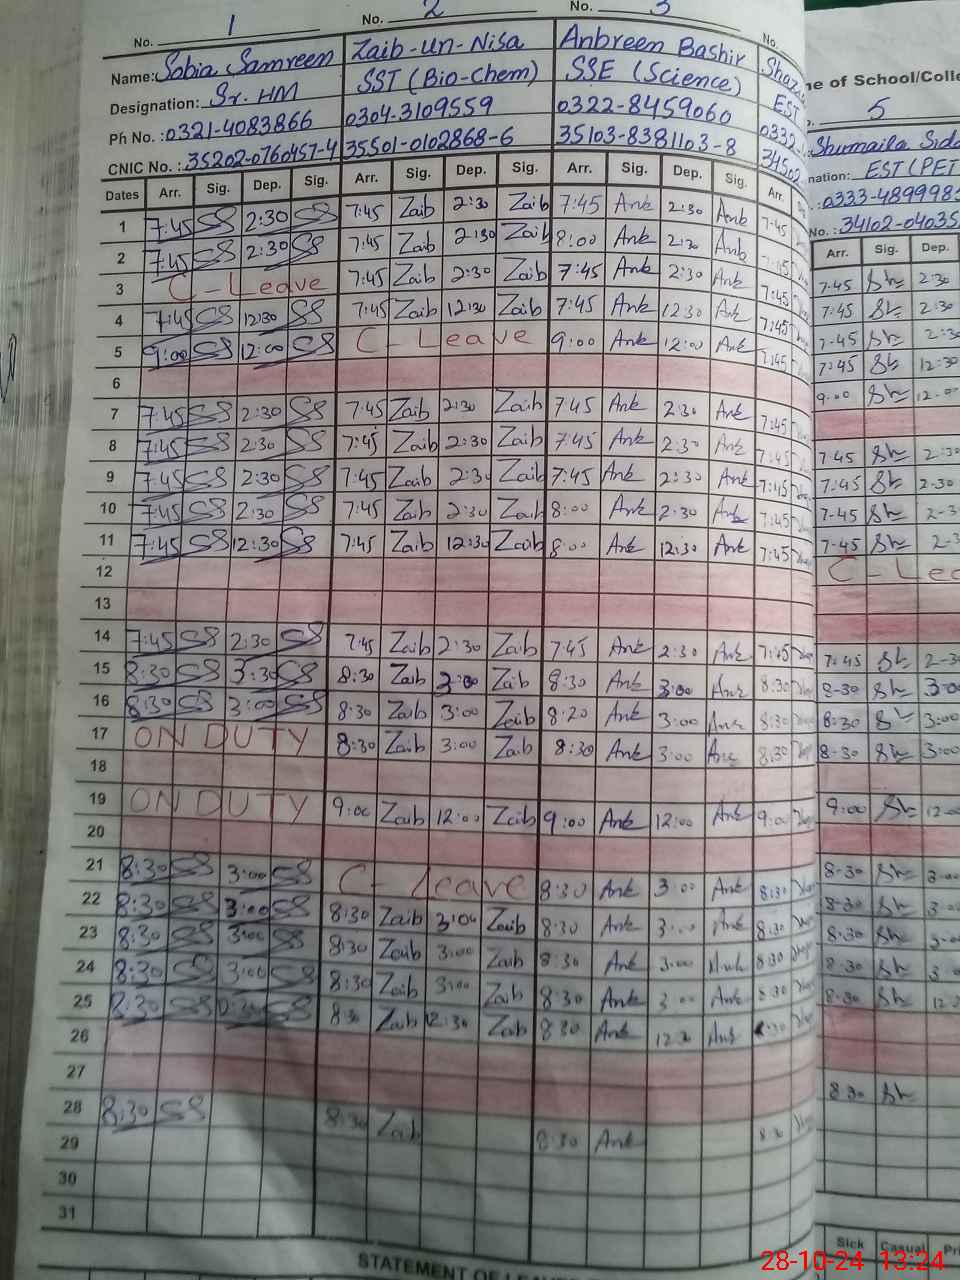 No. 1 No. 2 No. 3 No.
Name: Sobia Samreen Zaib-un-Nisa Anbreen Bashir
Designation: Sr. HM SST (Bio-Chem) SSE (Science) EST
Ph No.: 0321-4083866 0304-3109559 0322-8459060 0332
CNIC No.: 35202-0760457-4 35501-0102868-6 35103-8381103-8 34502
Dates Arr. Sig. Dep. Sig. Arr. Sig. Dep. Sig. Arr. Sig. Dep. Sig. Arr.
1 7:45 SS 2:30 SS 7:45 Zaib 2:30 Zaib 7:45 Ank 2:30 Ank 7:45
2 7:45 SS 2:30 SS 7:45 Zaib 2:30 Zaib 8:00 Ank 2:30 Ank 7:45
3 C-Leave 7:45 Zaib 2:30 Zaib 7:45 Ank 2:30 Ank 7:45
4 7:45 SS 12:30 SS 7:45 Zaib 12:30 Zaib 7:45 Ank 12:30 Ank 7:45
5 9:00 SS 12:00 SS C-Leave 9:00 Ank 12:00 Ank
6
7 7:45 SS 2:30 SS 7:45 Zaib 2:30 Zaib 7:45 Ank 2:30 Ank 7:45
8 7:45 SS 2:30 SS 7:45 Zaib 2:30 Zaib 7:45 Ank 2:30 Ank 7:45
9 7:45 SS 2:30 SS 7:45 Zaib 2:30 Zaib 7:45 Ank 2:30 Ank 7:45
10 7:45 SS 2:30 SS 7:45 Zaib 2:30 Zaib 8:00 Ank 2:30 Ank 7:45
11 7:45 SS 12:30 SS 7:45 Zaib 12:30 Zaib 8:00 Ank 12:30 Ank 7:45
12
13
14 7:45 SS 2:30 SS 7:45 Zaib 2:30 Zaib 7:45 Ank 2:30 Ank 7:45
15 8:30 SS 3:30 SS 8:30 Zaib 3:00 Zaib 8:30 Ank 3:00 Ank 8:30
16 8:30 SS 3:00 SS 8:30 Zaib 3:00 Zaib 8:20 Ank 3:00 Ank 8:30
17 ON DUTY 8:30 Zaib 3:00 Zaib 8:30 Ank 3:00 Ank 8:30
18
19 ON DUTY 9:00 Zaib 12:00 Zaib 9:00 Ank 12:00 Ank 9:00
20
21 8:30 SS 3:00 SS C-Leave 8:30 Ank 3:00 Ank 8:30
22 8:30 SS 3:00 SS 8:30 Zaib 3:00 Zaib 8:30 Ank 3:00 Ank 8:30
23 8:30 SS 3:00 SS 8:30 Zaib 3:00 Zaib 8:30 Ank 3:00 Ank 8:30
24 8:30 SS 3:00 SS 8:30 Zaib 3:00 Zaib 8:30 Ank 3:00 Ank 8:30
25 8:30 SS SS 8:30 Zaib 12:30 Zaib 8:30 Ank 12:30 Ank 8:30
26
27
28 8:30 SS 8:30 Zaib 8:30 Ank 8:30
29
30
31
STATEMENT OF
me of School/Colle
5
Shumaila
nation: EST (PET
0333-4899985
No.: 34102-04035
Arr. Sig. Dep.
7-45 Sh 2:30
7-45 Sh 2:30
7-45 Sh 2:3
7:45 Sh 12:30
9:00 Sh 12:0
7-45 Sh 2:30
7:45 Sh 2-30
7-45 Sh 2-3
7-45 Sh 2-3
C-Lea
7:45 Sh 2-3
8-30 Sh 3:00
8:30 Sh 3:00
8-30 Sh 3:00
9:00 Sh 12-0
8-30 Sh 3-00
8-30 Sh 3-0
8-30 Sh 3-00
8-30 Sh 3-0
8-30 Sh 12
8:30 Sh
Sick Casual Pri
28-10-24 13:24